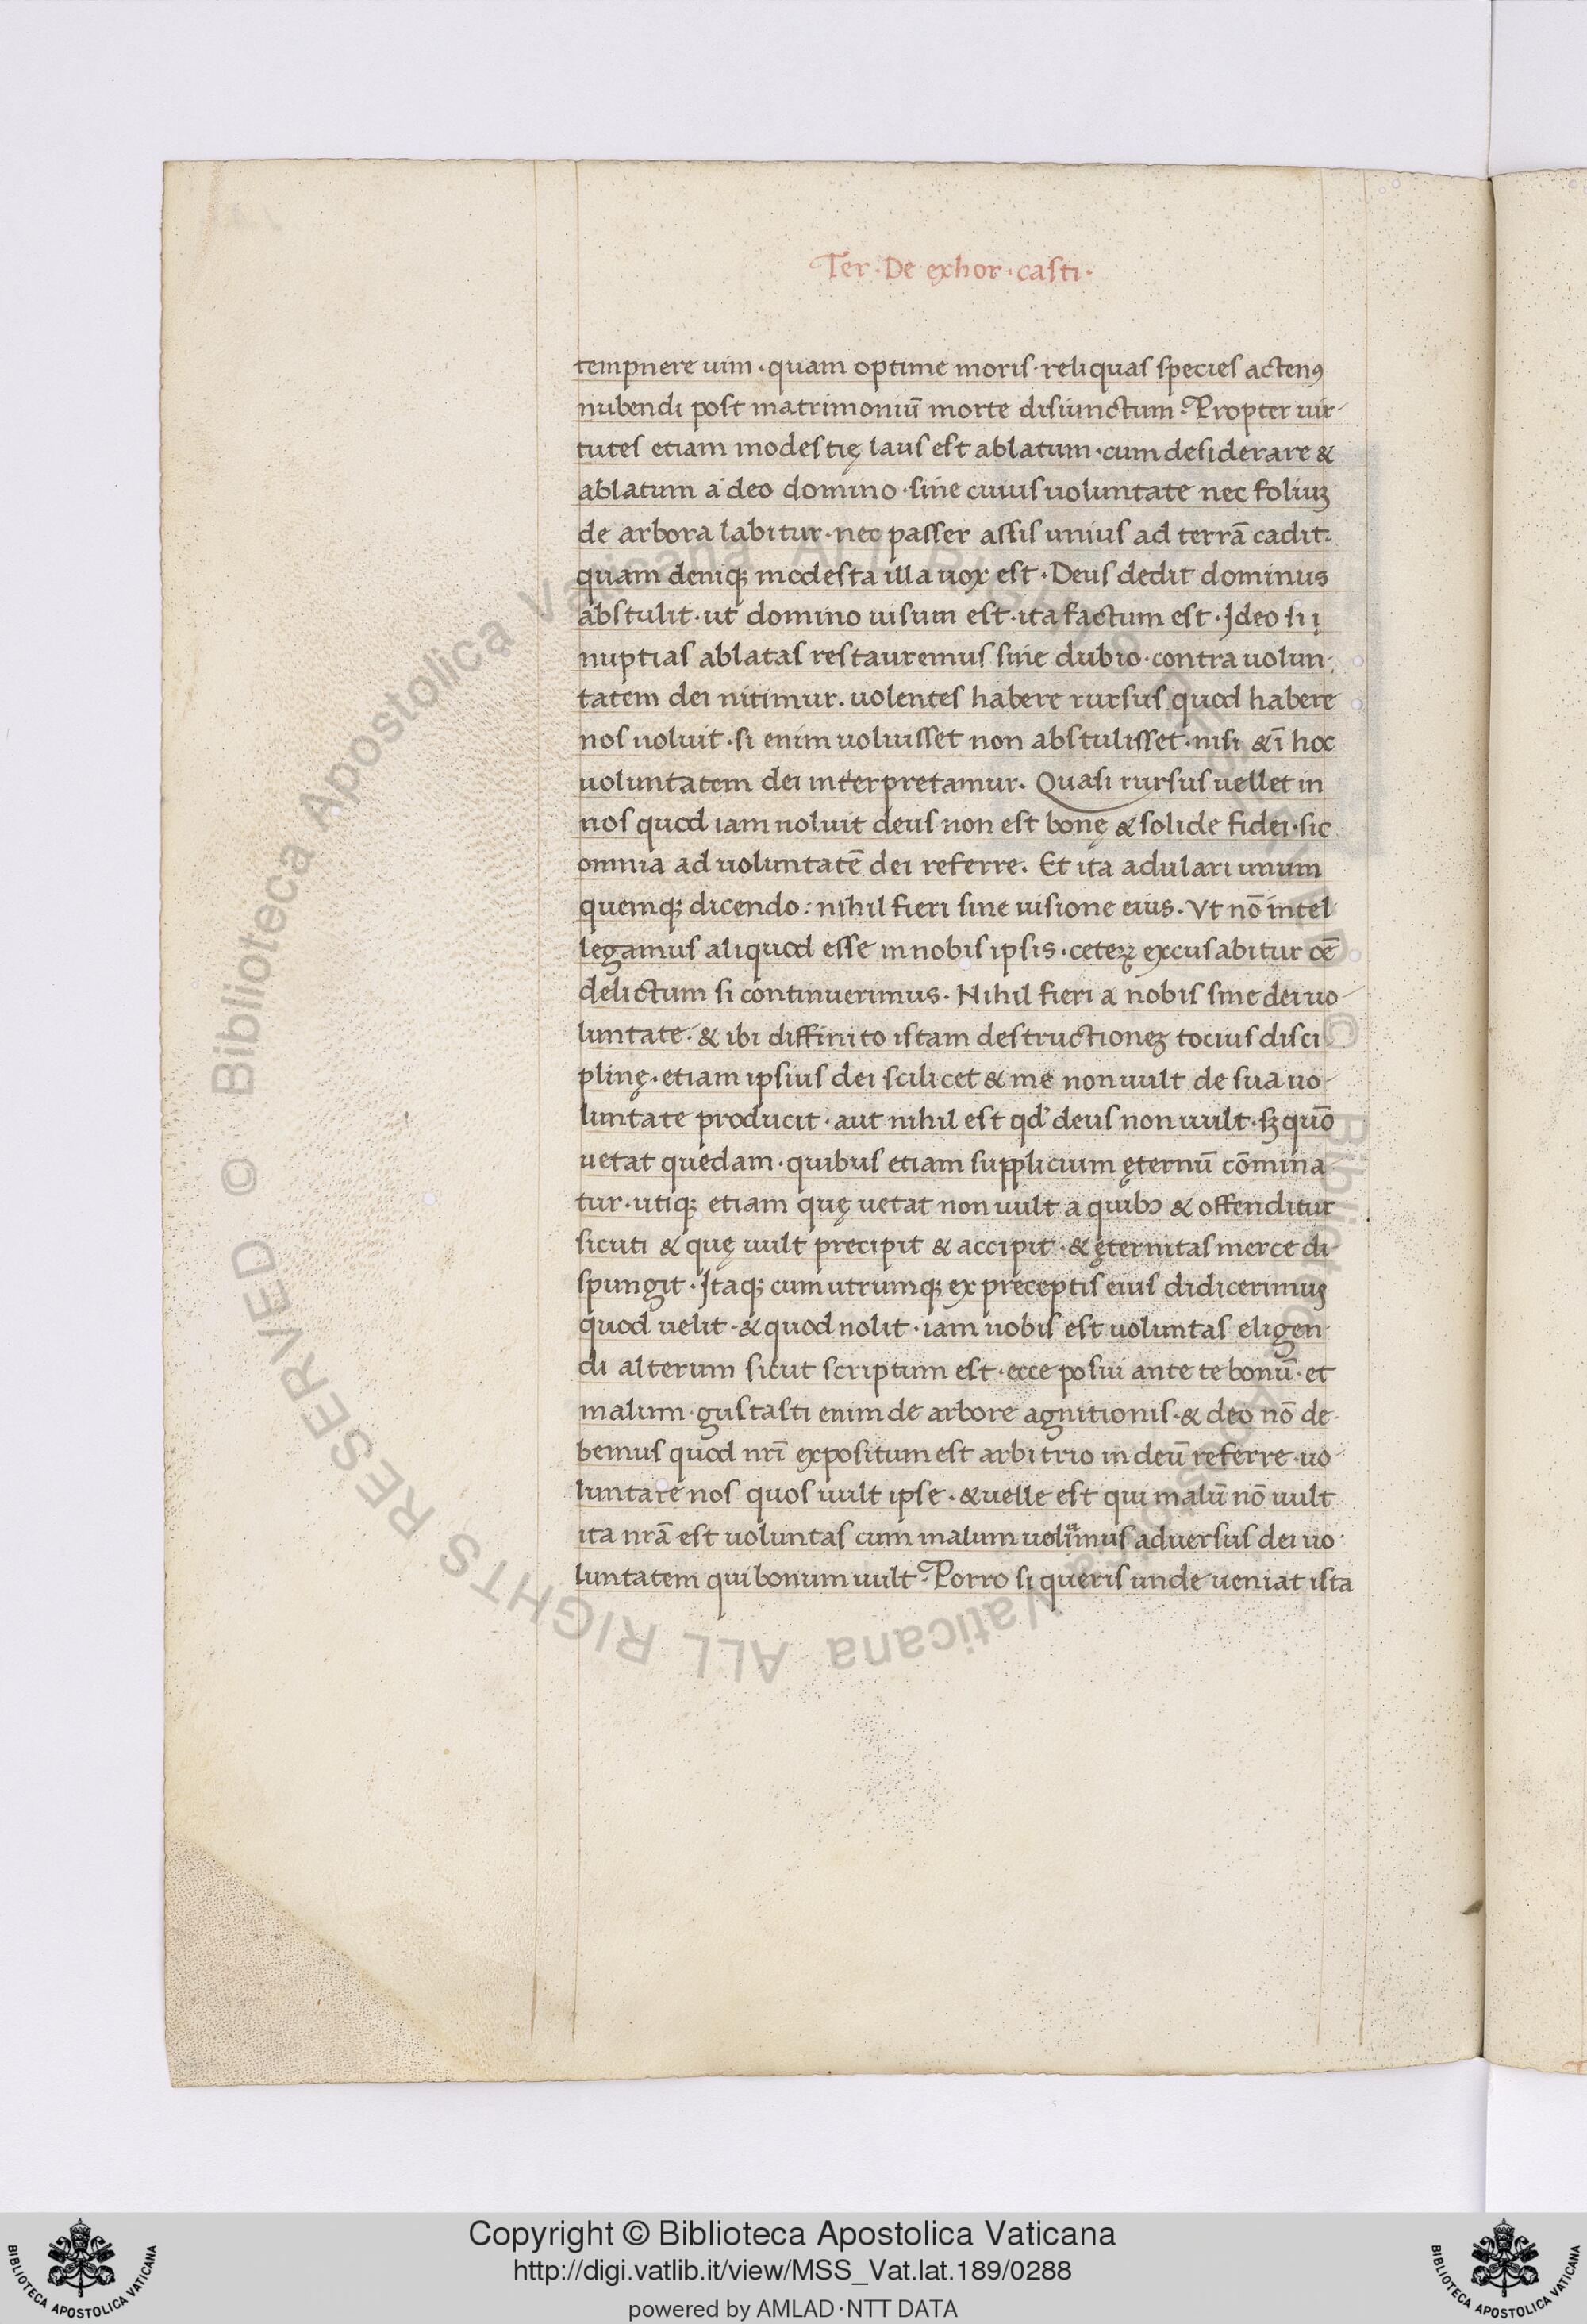 Ter · De exhor · casti ·
tempnere uim · quam optime moris · reliquas species acten⁹
nubendi post matrimoniū morte disiunctum · Propter uir-
tutes etiam modestię laus est ablatum · cum desiderare &
ablatum a deo domino · sine cuius uoluntate nec foliuꝫ
de arbora labitur · nec passer assis unius ad terrā cadit:
quam deniqꝫ modesta illa uox est · Deus dedit dominus
abstulit · ut domino uisum est · ita factum est · Ideo si i
nuptias ablatas restauremus sine dubio · contra uolun-
tatem dei nitimur. uolentes habere rursus quod habere
nos noluit · si enim uoluisset non abstulisset · nisi & ī hoc
uoluntatem dei interpretamur. Quasi rursus uellet in
nos quod iam noluit deus non est bonę & solide fidei · sic
omnia ad uoluntatē dei referre. Et ita adulari unum
quemqꝫ dicendo: nihil fieri sine uisione eius. Vt nō intel
legamus aliquod esse in nobis ipsis · ceterꝝ excusabitur oē
delictum si continuerimus. Nihil fieri a nobis sine dei uo-
luntate · & ibi diffinito istam destructioneꝫ tocius disci
plinę · etiam ipsius dei scilicet & me non uult de sua uo-
luntate producit · aut nihil est qd' deus non uult · sꝫ quō
uetat quedam · quibus etiam supplicium ęternū cōmina
tur · utiqꝫ etiam quę uetat non uult a quibɔ & offenditur
sicuti & quę uult precipit & accipit · & ęternitas merce di
spungit · Itaqꝫ cum utrumqꝫ ex preceptis eius didicerimus
quod uelit · & quod nolit · iam nobis est uoluntas eligen-
di alterum sicut scriptum est · ecce posui ante te bonū · et
malum · gustasti enim de arbore agnitionis · & deo nō de-
bemus quod nrī expositum est arbitrio in deū referre · uo-
luntare nos quos uult ipse · & uelle est qui malū nō uult
ita nrā est uoluntas cum malum uolimus aduersus dei uo-
luntatem qui bonum uult · Porro si queris unde ueniat ista
Copyright © Biblioteca Apostolica Vaticana
http://digi.vatlib.it/view/MSS_Vat.lat.189/0288
powered by AMLAD·NTT DATA
BIBLIOTECA APOSTOLICA VATICANA
BIBLIOTECA APOSTOLICA VATICANA
© Biblioteca Apostolica Vaticana ALL RIGHTS RESERVED
© Biblioteca Apostolica Vaticana ALL RIGHTS RESERVED